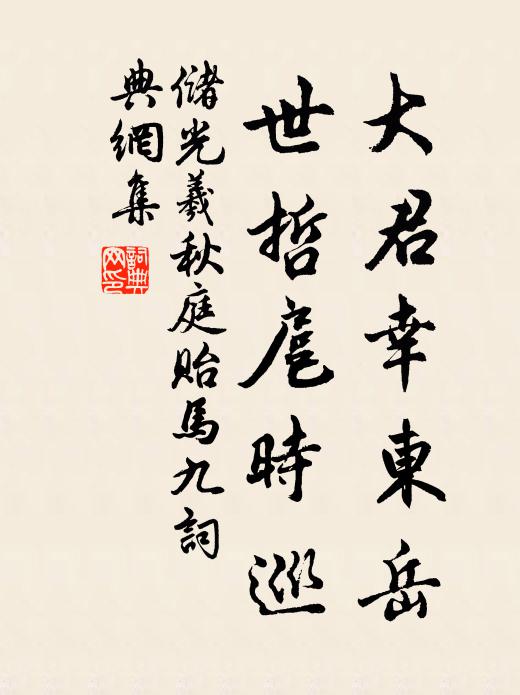 大君幸東岳
世哲扈時巡
儲光羲秋庭貽馬九詞
典網集
詞典
网印